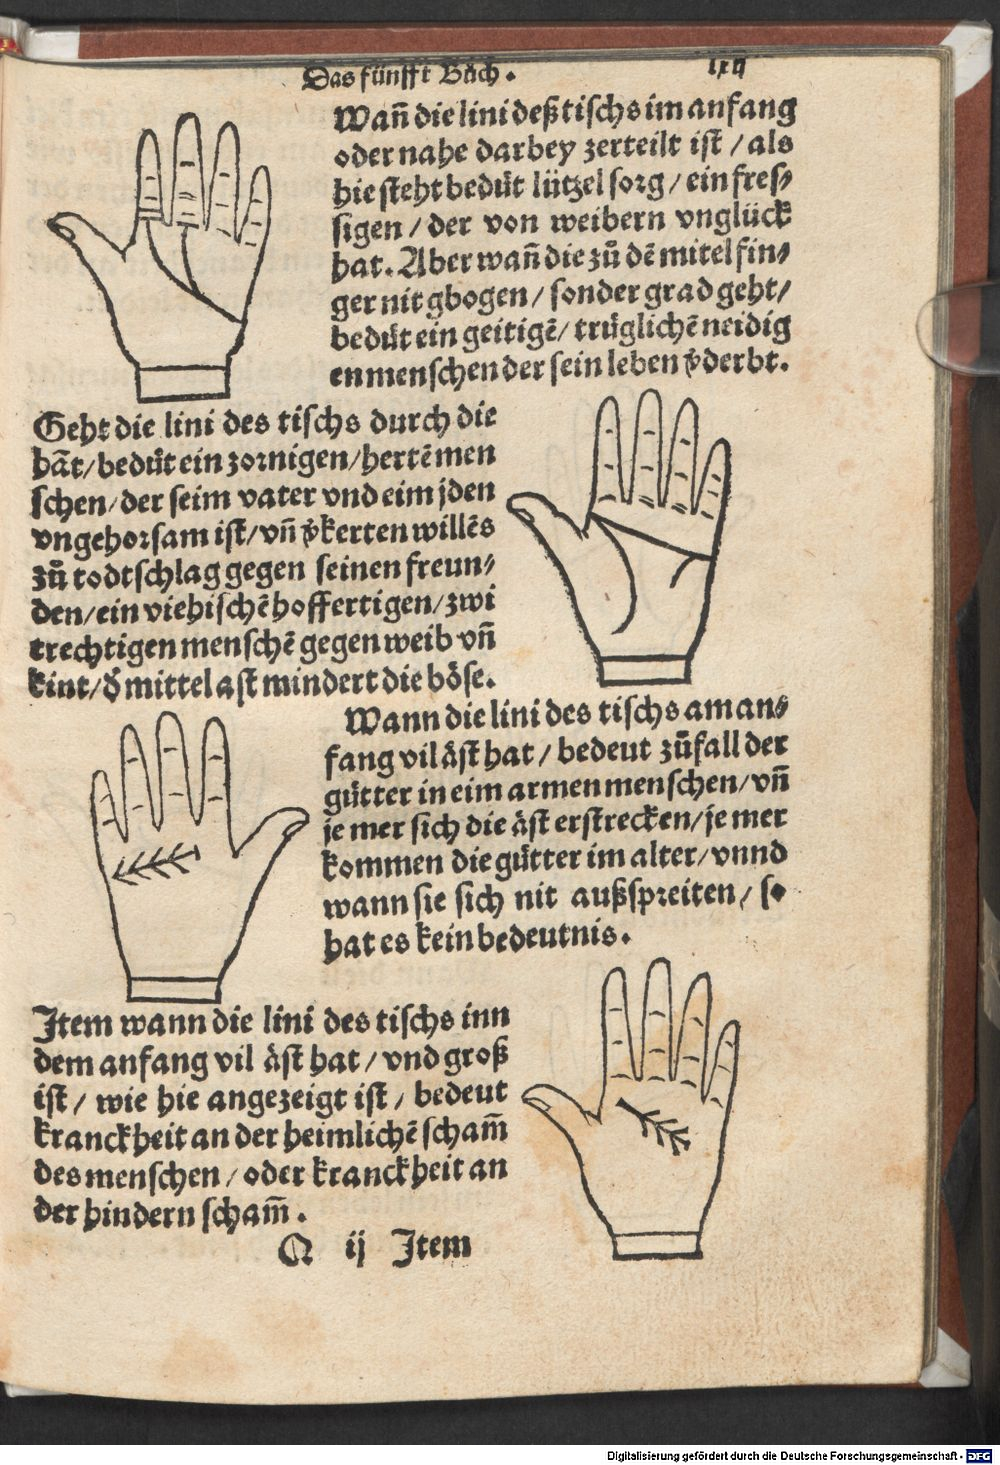 Das fünfft Bůch. lxij
Wañ die lini deß tischs im anfang
oder nahe darbey zerteilt ist / als
hie steht bedüt lützel sorg / ein fres⸗
sigen / der von weibern vnglück
hat. Aber wañ die zů dẽ mitel fin⸗
ger nit gbogen / sonder grad geht /
bedüt ein geitigẽ / trüglichẽ neidig
en menschen der sein leben v̈derbt.
Geht die lini des tischs durch die
hãt / bedüt ein zornigen / hertẽ men
schen / der seim vater vnd eim jden
vngehorsam ist / vñ v̈kerten willẽs
zů todtschlag gegen seinen freun⸗
den / ein viehischẽ hoffertigen / zwi
trechtigen menschẽ gegen weib vñ
kint / d̕ mittel ast mindert die böse.
Wann die lini des tischs am an⸗
fang vil äst hat / bedeut zůfall der
gütter in eim armen menschen / vñ
je mer sich die äst erstrecken / je mer
kommen die gütter im alter / vnnd
wann sie sich nit außspreiten / so
hat es kein bedeutnis.
Item wann die lini des tischs inn
dem anfang vil äst hat / vnd groß
ist / wie hie angezeigt ist / bedeut
kranckheit an der heimlichẽ scham̃
des menschen / oder kranckheit an
der hindern scham̃.
Q ij Item
Digitalisierung gefördert durch die Deutsche Forschungsgemeinschaft - DFG